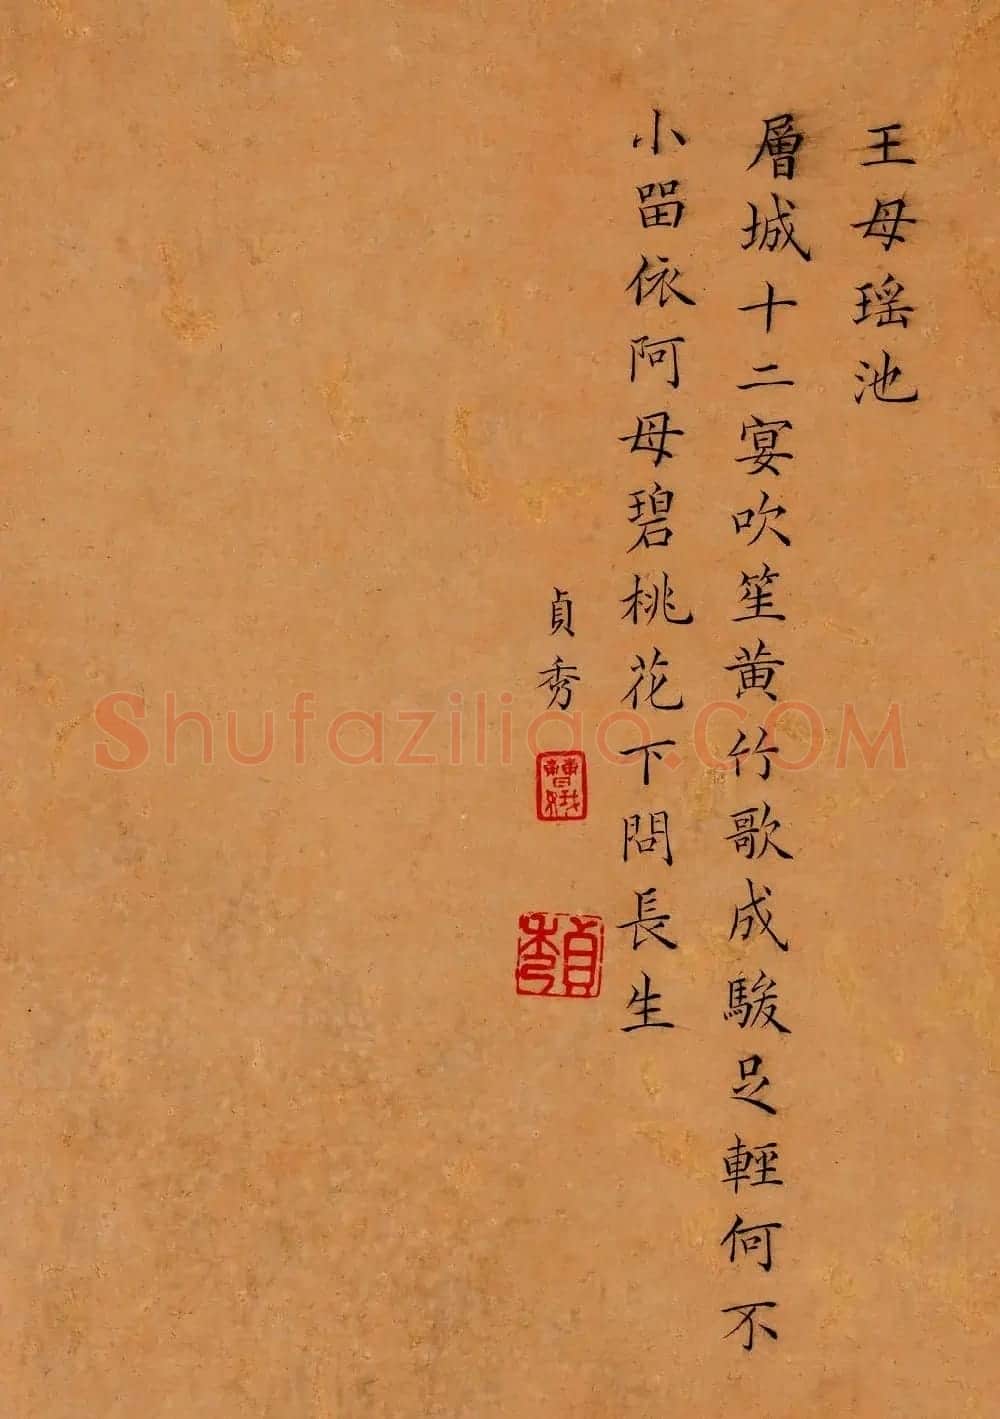 王母瑶池
層城十二宴吹笙黄竹歌成駿足輕何不
小留依阿母碧桃花下問長生
貞秀
曹娥
貞秀
Shufaziliao.COM